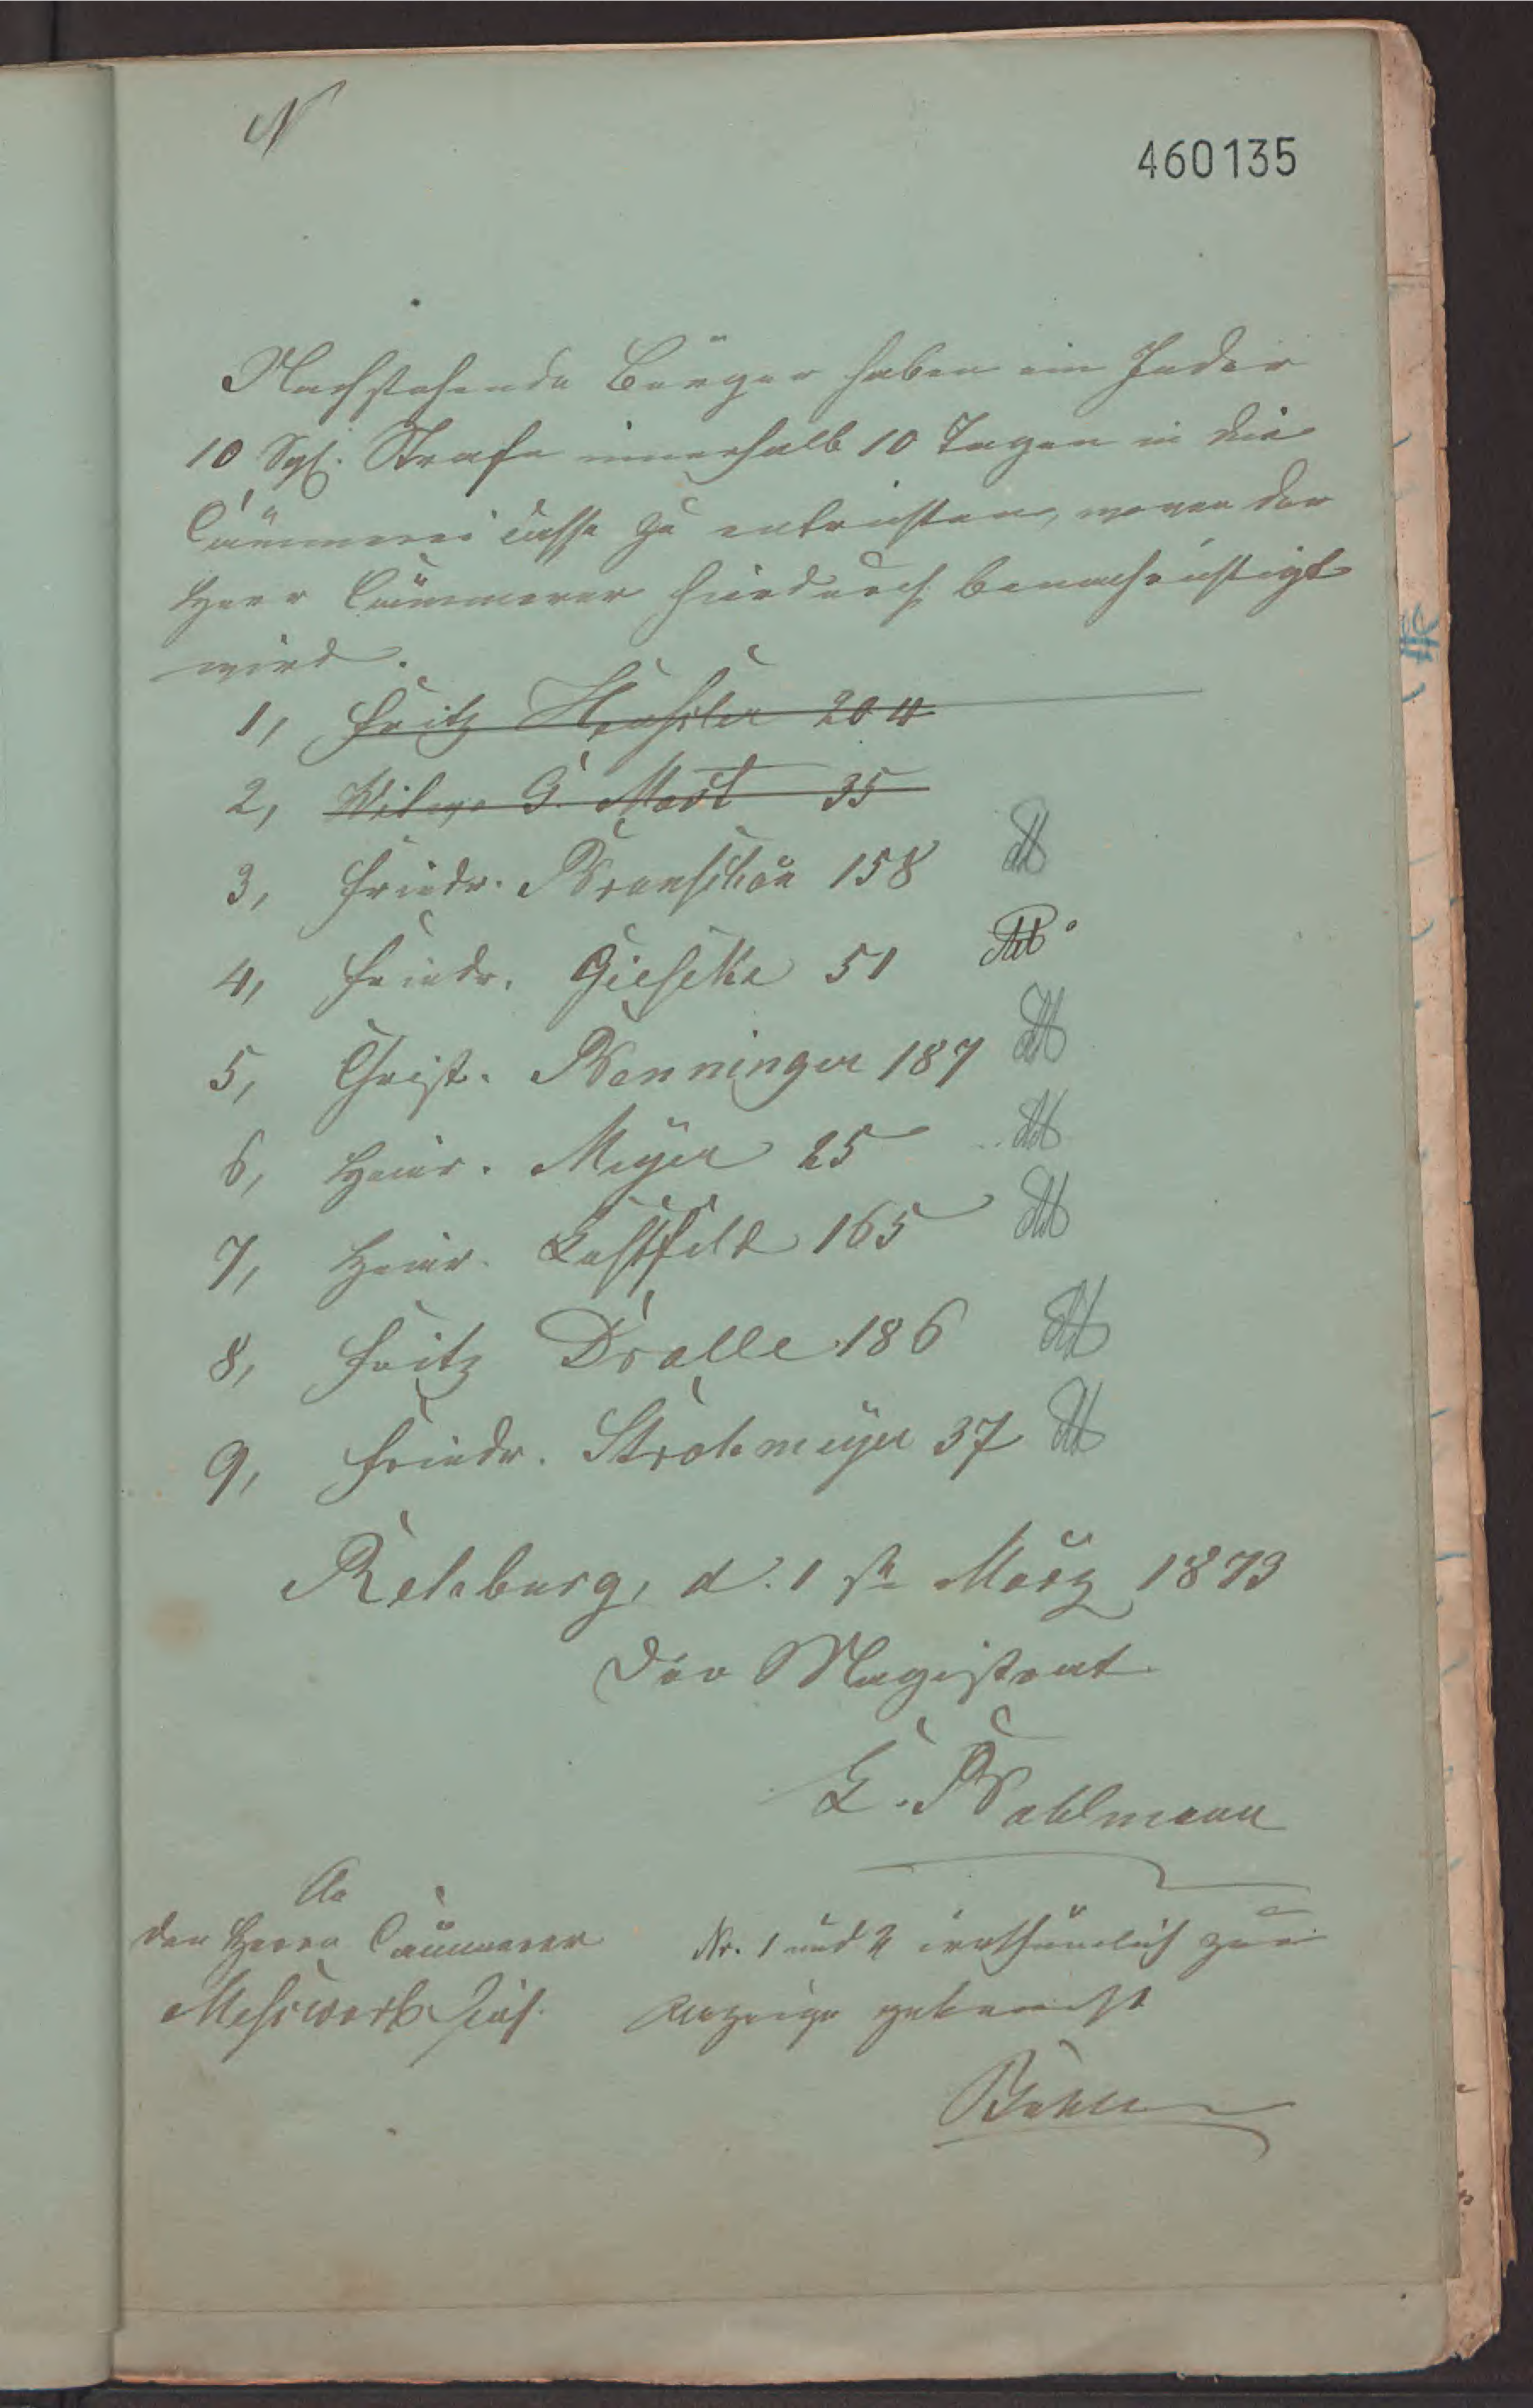 N
460135
Nachstehende Bürger haben ein Jeder
10 Sgl. Strafe innerhalb 10 Tagen in die
Cämmerei Casse zu entrichten, wovon der
Herr Cämmerer hierdurch benachrichtigt
wird.
1, Fritz 204
2, Witwe G. Most 35
3, Friedr. Branschön 158
4, Friedr. Gieseke 51
5, Christ. Wenninger 187
6, Heinr. Meyer 25
7, Heinr. Lustfeld 165
8, Fritz Dralle 186
9, Friedr. Strohmeyer 37
Rehburg, d. 1 ste März 1873
Der Magistrat
E. Wahlmann
An
den Herrn Cämmerer
Messwarb
Nr. 1 und 2 irrthümlich zur
Anzeige gebracht